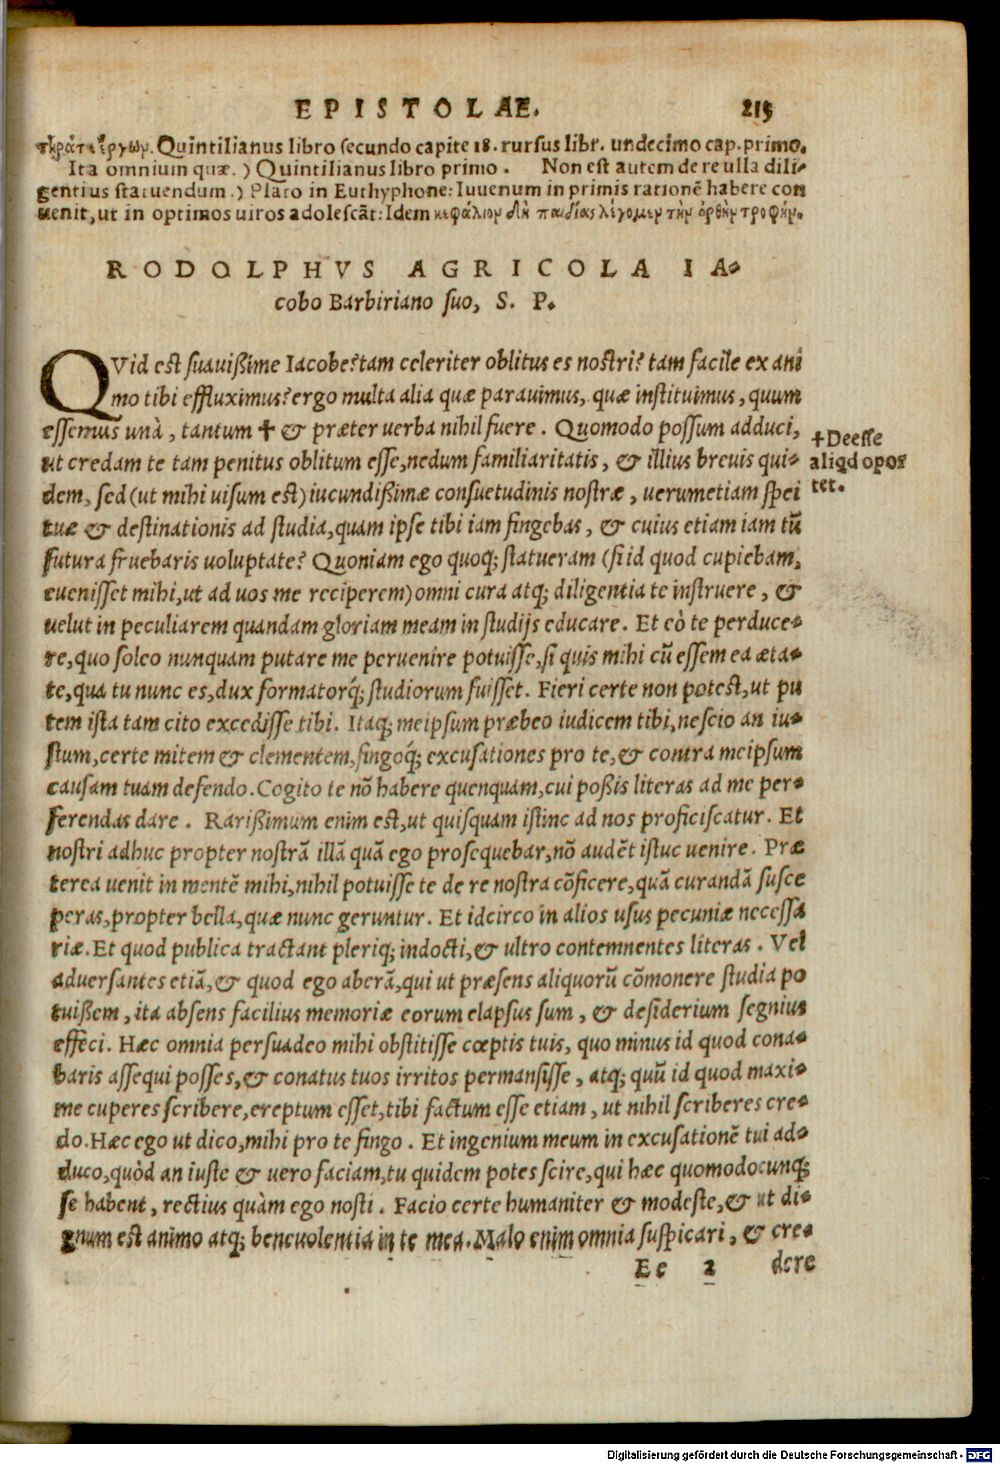 EPISTOLAE. 215
Quintilianus libro secundo capite 18. rursus libr. undecimo cap. primo.
Ita omnium quæ.) Quintilianus libro primo. Non est autem de re ulla dili-
gentius statuendum.) Plato in Euthyphone: Iuvenum in primis rationē habere con
uenit, ut in optimos uiros adolescāt: Idem κεφάλιον δὴ παιδίας λέγομεν τὴν ὀρθὴν τροφήν.
RODOLPHVS AGRICOLA IA-
cobo Barbiriano suo, S. P.
QVid est suauißime Iacobe? tam celeriter oblitus es nostri? tam facile ex ani
mo tibi effluximus? ergo multa alia quæ parauimus, quæ instituimus, quum
essemus unà, tantum ✝ & præter uerba nihil fuere. Quomodo possum adduci,
ut credam te tam penitus oblitum esse, nedum familiaritatis, & illius breuis qui-
dem, sed (ut mihi uisum est) iucundißimæ consuetudinis nostræ, uerumetiam spei
tuæ & destinationis ad studia, quam ipse tibi iam fingebas, & cuius etiam iam tū
futura fruebaris uoluptate? Quoniam ego quoq; statueram (si id quod cupiebam,
euenisset mihi, ut ad uos me reciperem) omni cura atq; diligentia te instruere, &
uelut in peculiarem quandam gloriam meam in studijs educare. Et eò te perduce-
re, quo soleo nunquam putare me peruenire potuisse, si quis mihi cū essem ea æta-
te, qua tu nunc es, dux formatorq́; studiorum fuisset. Fieri certe non potest, ut pu
tem ista tam cito excedisse tibi. Itaq; meipsum præbeo iudicem tibi, nescio an iu-
stum, certe mitem & clementem, fingoq́; excusationes pro te, & contra meipsum
causam tuam defendo. Cogito te nō habere quenquam, cui poßis literas ad me per-
ferendas dare. Rarißimum enim est, ut quisquam istinc ad nos proficiscatur. Et
nostri adhuc propter nostrā illā quā ego prosequebar, nō audēt istuc uenire. Præ
terea uenit in mentē mihi, nihil potuisse te de re nostra cōficere, quā curandā susce
peras, propter bella, quæ nunc geruntur. Et idcirco in alios usus pecuniæ necessa
riæ. Et quod publica tractant pleriq; indocti, & ultro contemnentes literas. Vel
aduersantes etiā, & quod ego aberā, qui ut præsens aliquorū cōmonere studia po
tuißem, ita absens facilius memoriæ eorum elapsus sum, & desiderium segnius
effeci. Hæc omnia persuadeo mihi obstitisse cœptis tuis, quo minus id quod cona-
baris assequi posses, & conatus tuos irritos permansisse, atq; quū id quod maxi-
me cuperes scribere, ereptum esset, tibi factum esse etiam, ut nihil scriberes cre-
do. Hæc ego ut dico, mihi pro te fingo. Et ingenium meum in excusationē tui ad-
duco, quòd an iuste & uero faciam, tu quidem potes scire, qui hæc quomodocunq;
se habent, rectius quàm ego nosti. Facio certe humaniter & modeste, & ut di-
gnum est animo atq; beneuolentia in te mea. Malo enim omnia suspicari, & cre-
Ee 2 dere
✝Deesse
aliqd opor
tet.
Digitalisierung gefördert durch die Deutsche Forschungsgemeinschaft - DFG